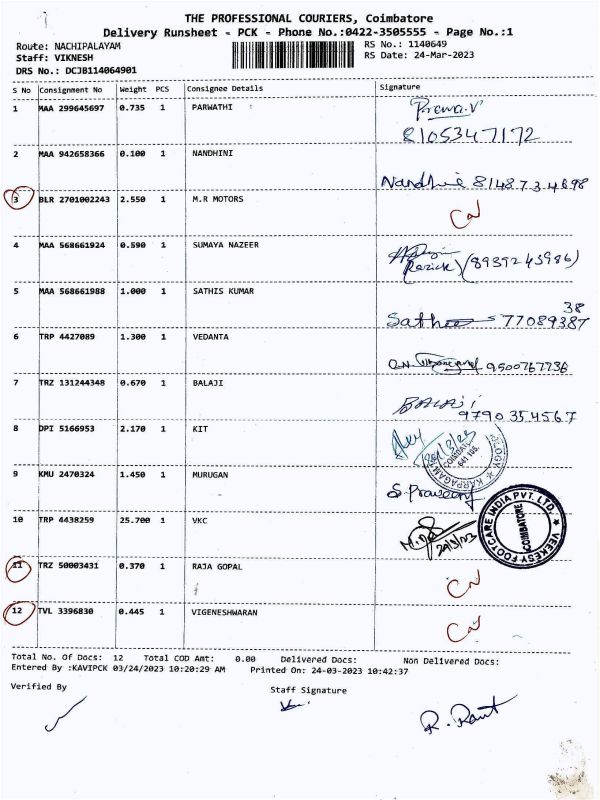 THE PROFESSIONAL COURIERS, Coimbatore
Delivery Runsheet - PCK - Phone No.:0422-3505555 - Page No.:1
Route: NACHIPALAYAM RS No.: 1140649
Staff: VIKNESH RS Date: 24-Mar-2023
DRS No.: DCJB114064901
S No Consignment No Weight PCS Consignee Details Signature
1 MAA 299645697 0.735 1 PARWATHI
8105347172
2 MAA 942658366 0.100 1 NANDHINI
Nandhinie 8148734698
3 BLR 2701002243 2.550 1 M.R MOTORS
4 MAA 568661924 0.590 1 SUMAYA NAZEER
(8939245986)
5 MAA 568661988 1.000 1 SATHIS KUMAR
38
77089387
6 TRP 4427089 1.300 1 VEDANTA
9500767736
7 TRZ 131244348 0.670 1 BALAJI
BALAJI
9790354567
8 DPI 5166953 2.170 1 KIT
9 KMU 2470324 1.450 1 MURUGAN
10 TRP 4438259 25.700 1 VKC
24/3/23
VEEKESY FOOTCARE INDIA PVT. LTD.
COIMBATORE
11 TRZ 50003431 0.370 1 RAJA GOPAL
12 TVL 3396830 0.445 1 VIGENESHWARAN
Total No. Of Docs: 12 Total COD Amt: 0.00 Delivered Docs: Non Delivered Docs:
Entered By :KAVIPCK 03/24/2023 10:20:29 AM Printed On: 24-03-2023 10:42:37
Verified By Staff Signature